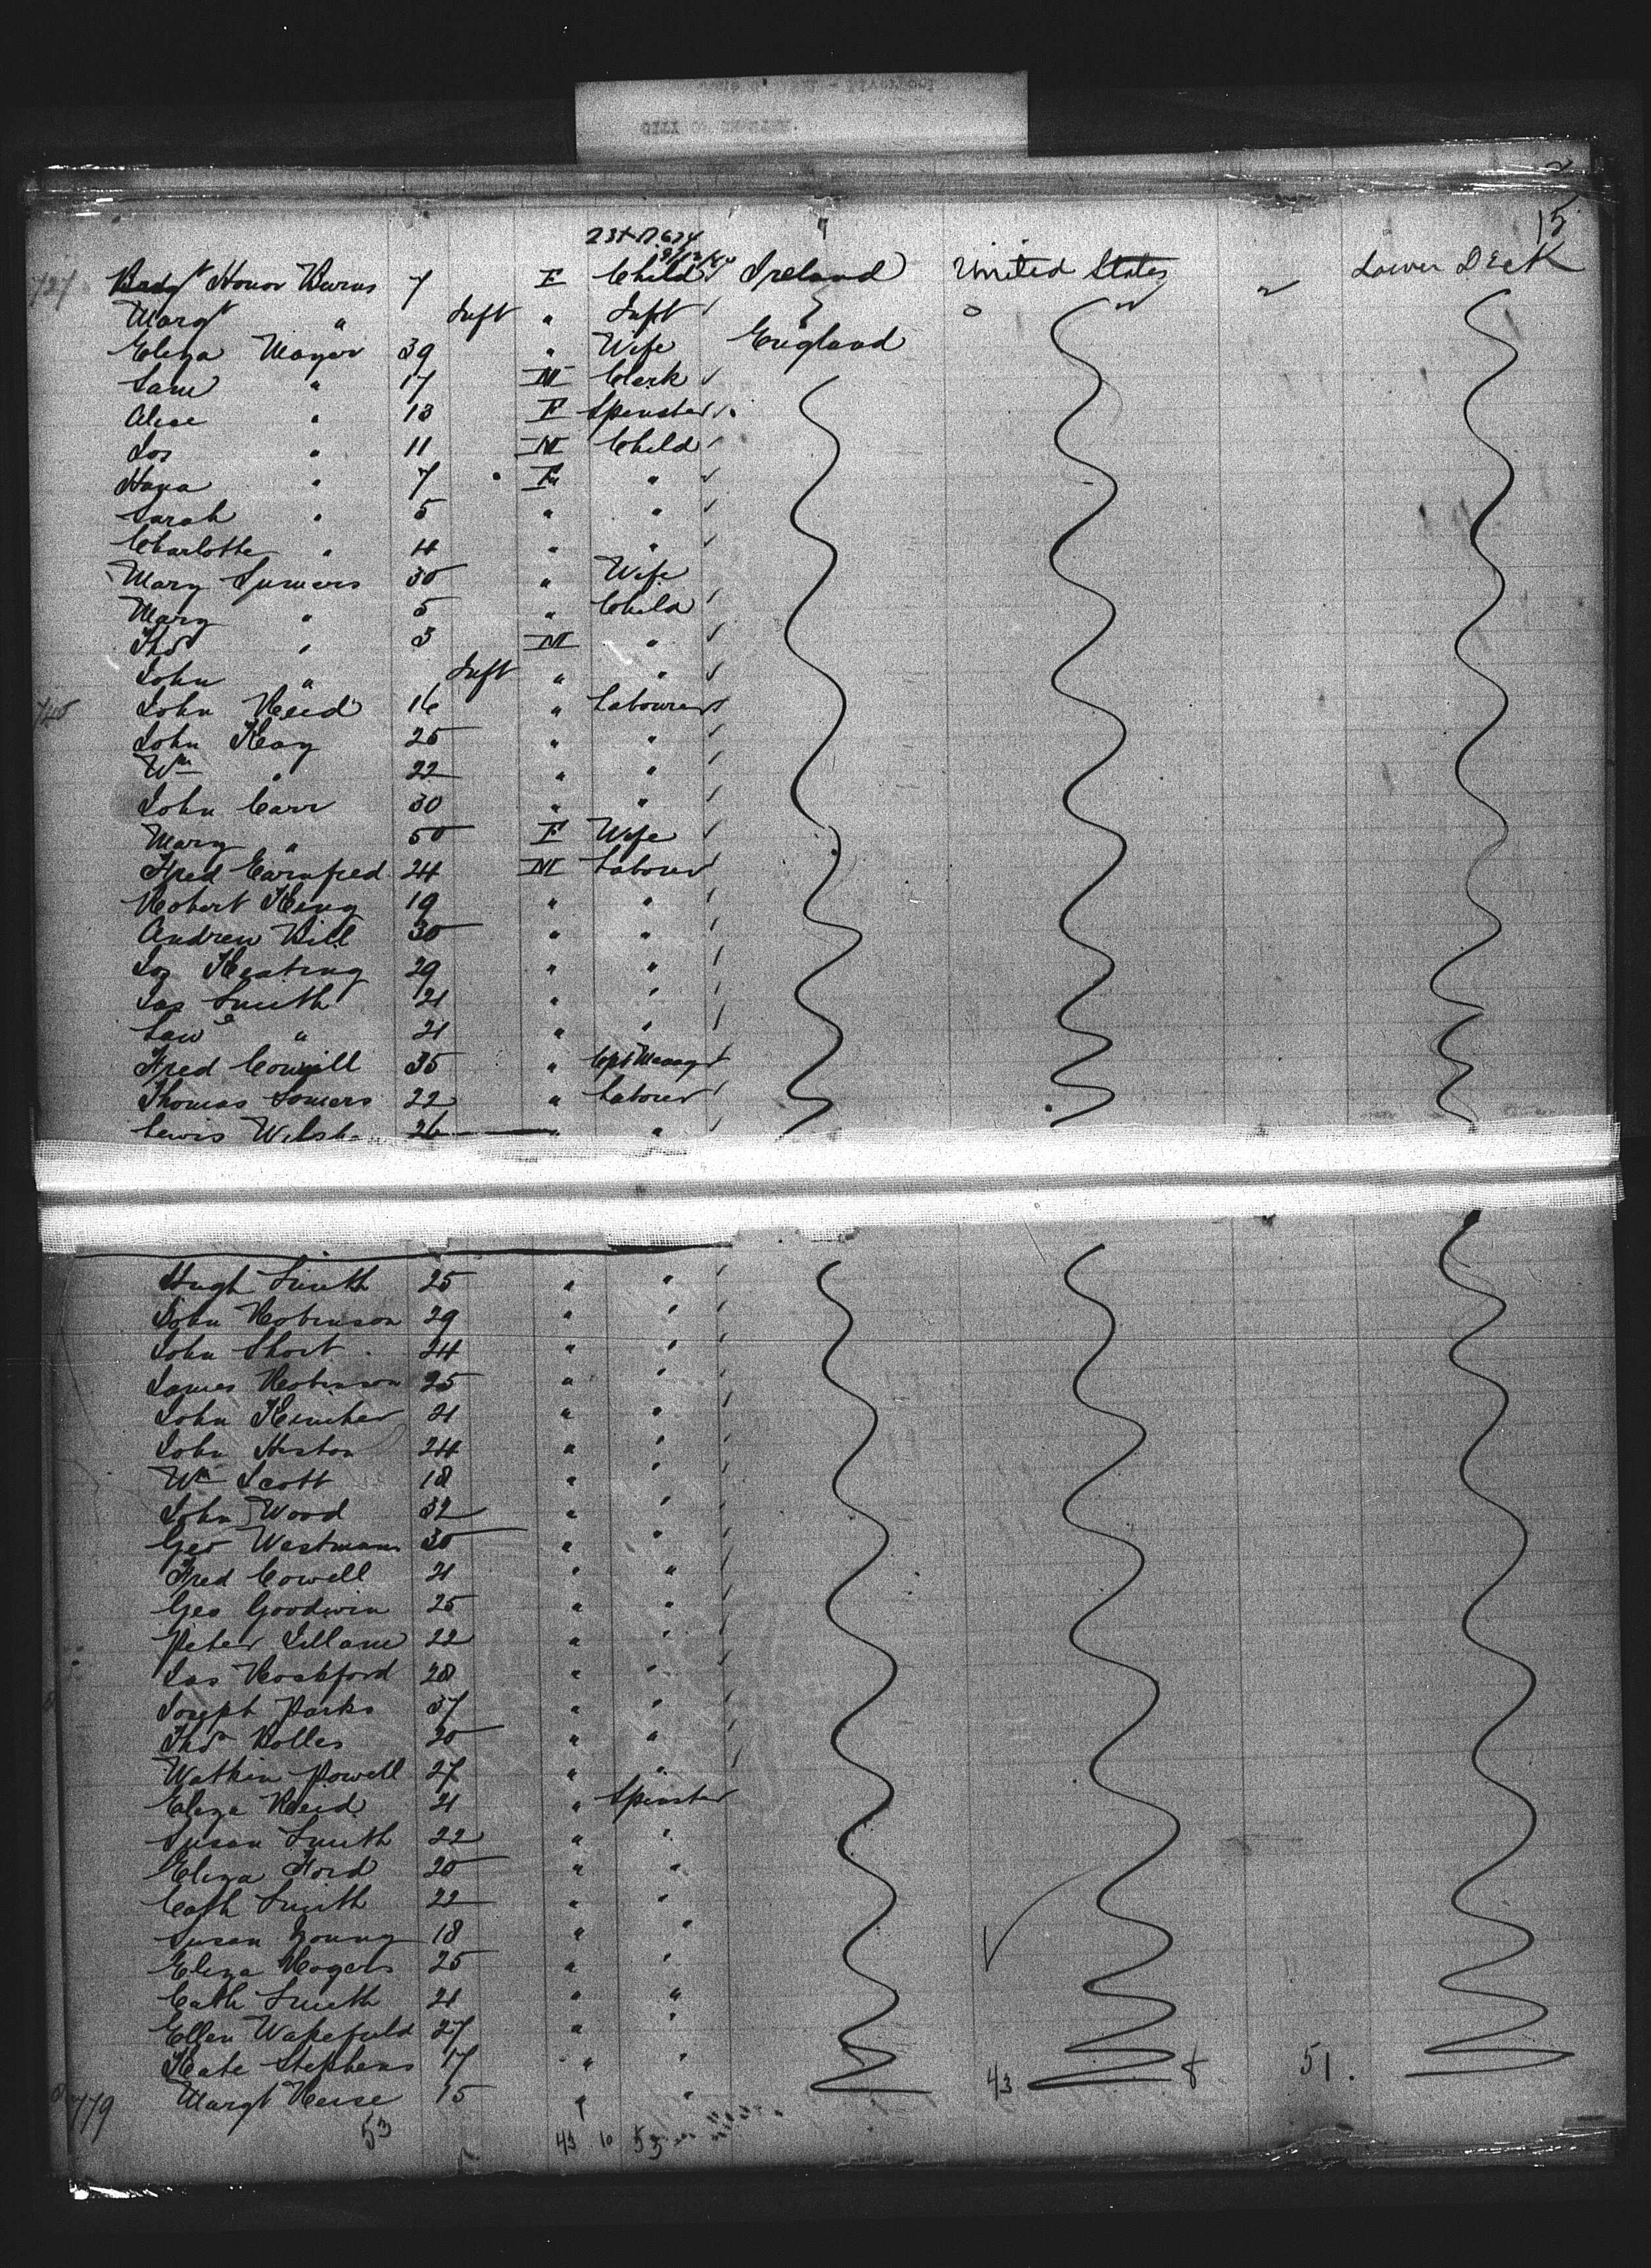 15
727 Honor Burns 7 F Child Ireland United States Lower Deck
Margt " Inft " Inft
Eliza Mayer 39 " Wife England
Sam " 17 M Clerk
Alice " 13 F Spinster
Jos " 11 M Child
Hana " 7 F "
Sarah " 5 " "
Charlotte " 4 " "
Mary Sumers 30 " Wife
Mary " 5 " Child
Thos " 3 M "
John " Inft " "
740 John Reid 16 " Labourer
John Kay 25 " "
Wm " 22 " "
John Carr 30 " "
Mary " 50 F Wife
Fred 24 M Labourer
Robert King 19 " "
Andrew Bill 30 " "
Jos Keating 29 " "
Jas Smith 21 " "
Law " 21 " "
Fred Cowgill 35 "
Thomas Somers 22 " Labourer
Lewis 26 "
Hugh Smith 25 " "
John Robinson 29 " "
John Short 24 " "
James Robinson 25 " "
John 21 " "
John Heston 24 " "
Wm Scott 18 "
John Wood 32 " "
Geo Westmann 30 " "
Fred Cowell 21 " "
Geo Goodwin 25 " "
Peter 22 " "
Jas Roshford 28 " "
Joseph Parks 37 " "
Thos Bolles 20 " "
Watkin Powell 27 " "
Eliza Reid 21 " Spinster
Susan Smith 22 " "
Eliza Ford 20 " "
Cath Smith 22 " "
Susan Young 18 " "
Eliza Rogers 25 " "
Cath Smith 21 " "
Ellen Wakefield 27 " "
Kate Stephens 17 " "
43 8 51.
779 Margt 15 " "
53 43 10 53